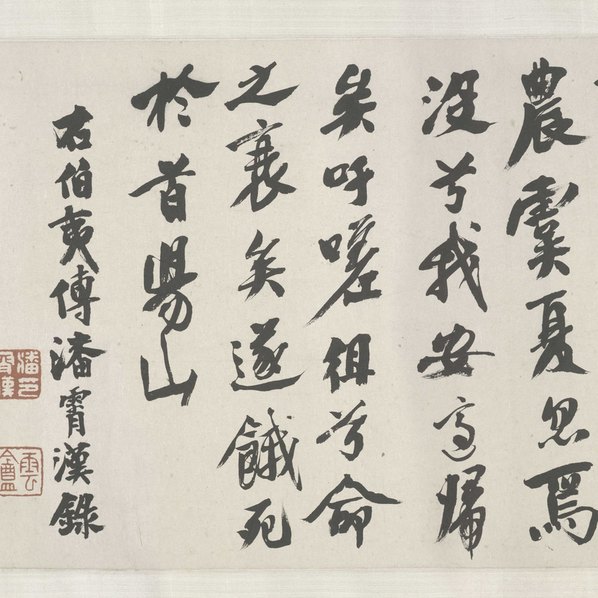 農虞夏忽焉
沒兮我安適歸
矣吁嗟徂兮命
之衰矣遂餓死
於首陽山
右伯夷傳潘霄漢錄
潘印霄漢
雲盦